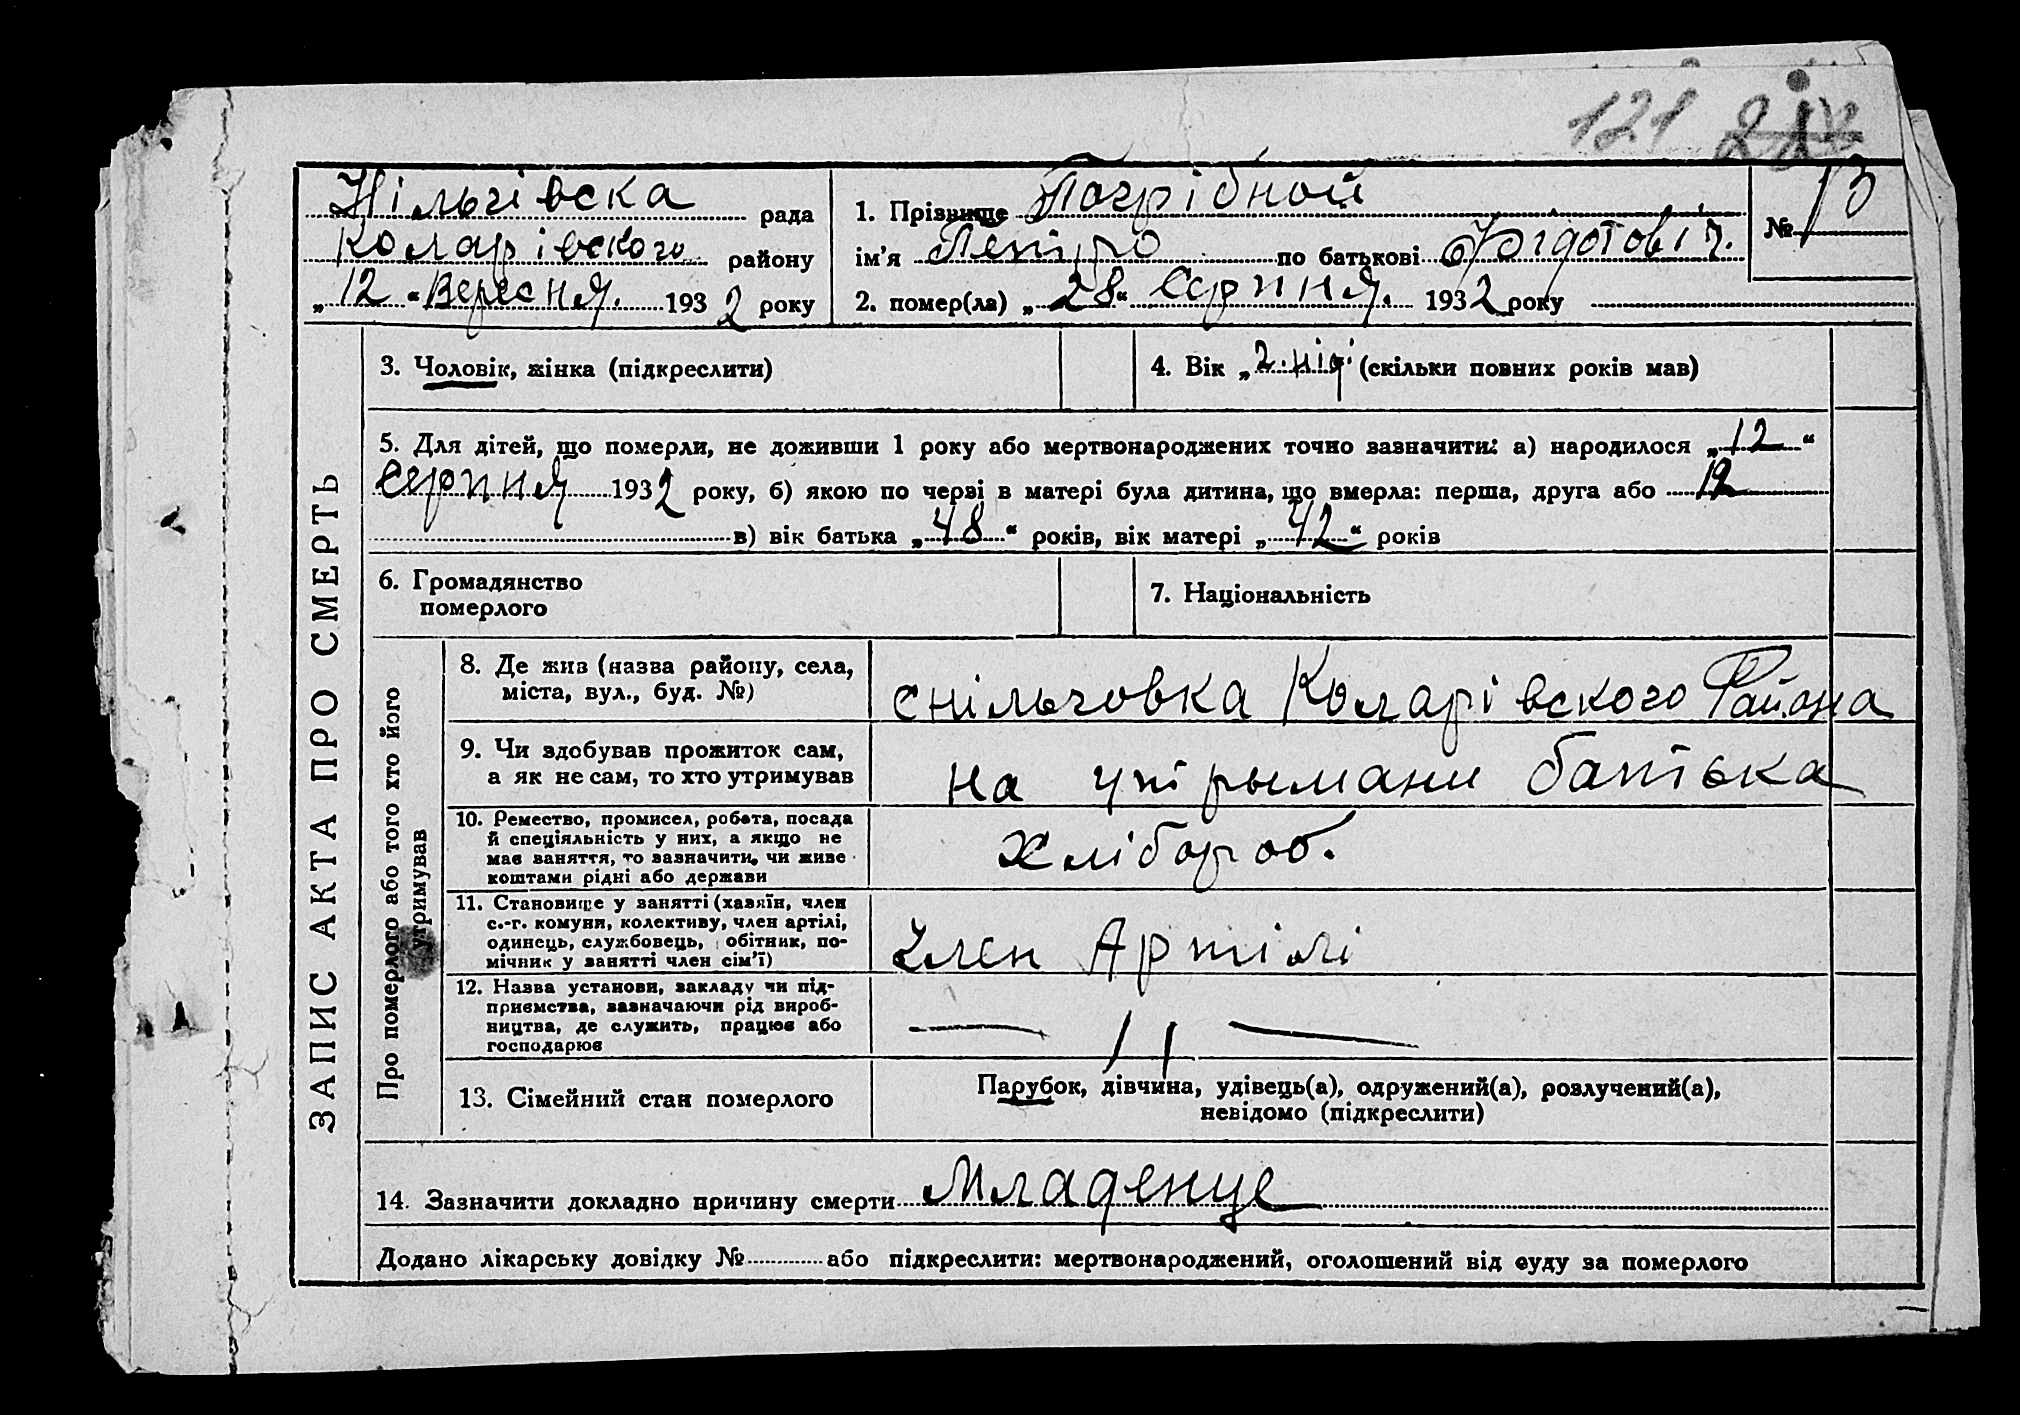 121
Нільгівска рада
Коларівского району
„12“ Вересня. 1932 року
1. Прізвище Погрібной
ім’я Петро по батькові Фідотовіч.
2. помер(ла) „28“ Серпня. 1932 року
№ 13
ЗАПИС АКТА ПРО СМЕРТЬ
3. Чоловік, жінка (підкреслити)
4. Вік „2.нід“ (скільки повних років мав)
5. Для дітей, що померли, не доживши 1 року або мертвонароджених точно зазначити: а) народилося „12“
Серпня 1932 року, б) якою по черзі в матері була дитина, що вмерла: перша, друга або 12
в) вік батька „48“ років, вік матері „42“ років
6. Громадянство
померлого
7. Національність
Про померлого або того хто його
утримував
8. Де жив (назва району, села,
міста, вул., буд. №)
снільговка Коларівского Района
9. Чи здобував прожиток сам,
а як не сам, то хто утримував
на утрымани батька
10. Ремество, промисел, робота, посада
й спеціяльність у них, а якщо не
має заняття, то зазначити, чи живе
коштами рідні або держави
Хлібороб.
11. Становище у занятті (хазяїн, член
с.-г. комуни, колективу, член артілі,
одинець, службовець, обітник, по-
мічник у занятті член сім’ї)
Член Артілі
12. Назва установи, закладу чи під-
приємства, зазначаючи рід вироб-
ництва, де служить, працює або
господарює
— 11 —
13. Сімейний стан померлого
Парубок, дівчина, удівець(а), одружений(а), розлучений(а),
невідомо (підкреслити)
14. Зазначити докладно причину смерти Младенце
Додано лікарську довідку № або підкреслити: мертвонароджений, оголошений від суду за померлого